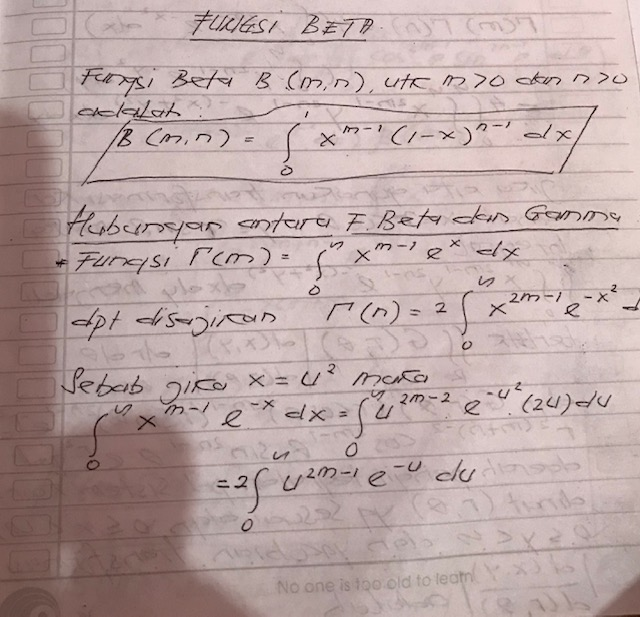 FUNGSI BETA
Fungsi Beta B (m,n), utk m>0 dan n>0
adalah :
B (m,n) = ∫₀¹ x^{m-1} (1-x)^{n-1} dx
Hubungan antara F. Beta dan Gamma
* Fungsi Γ(m) = ∫₀^∞ x^{m-1} e^{x} dx
dpt disajikan Γ(n) = 2 ∫₀^∞ x^{2m-1} e^{-x²} d
Sebab jika x = u² maka
∫₀^∞ x^{m-1} e^{-x} dx = ∫₀^∞ u^{2m-2} e^{-u²} (2u) du
= 2 ∫₀^∞ u^{2m-1} e^{-u} du
No one is too old to learn